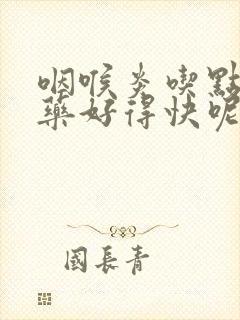 咽喉炎喫點
藥好得快呢
國長青